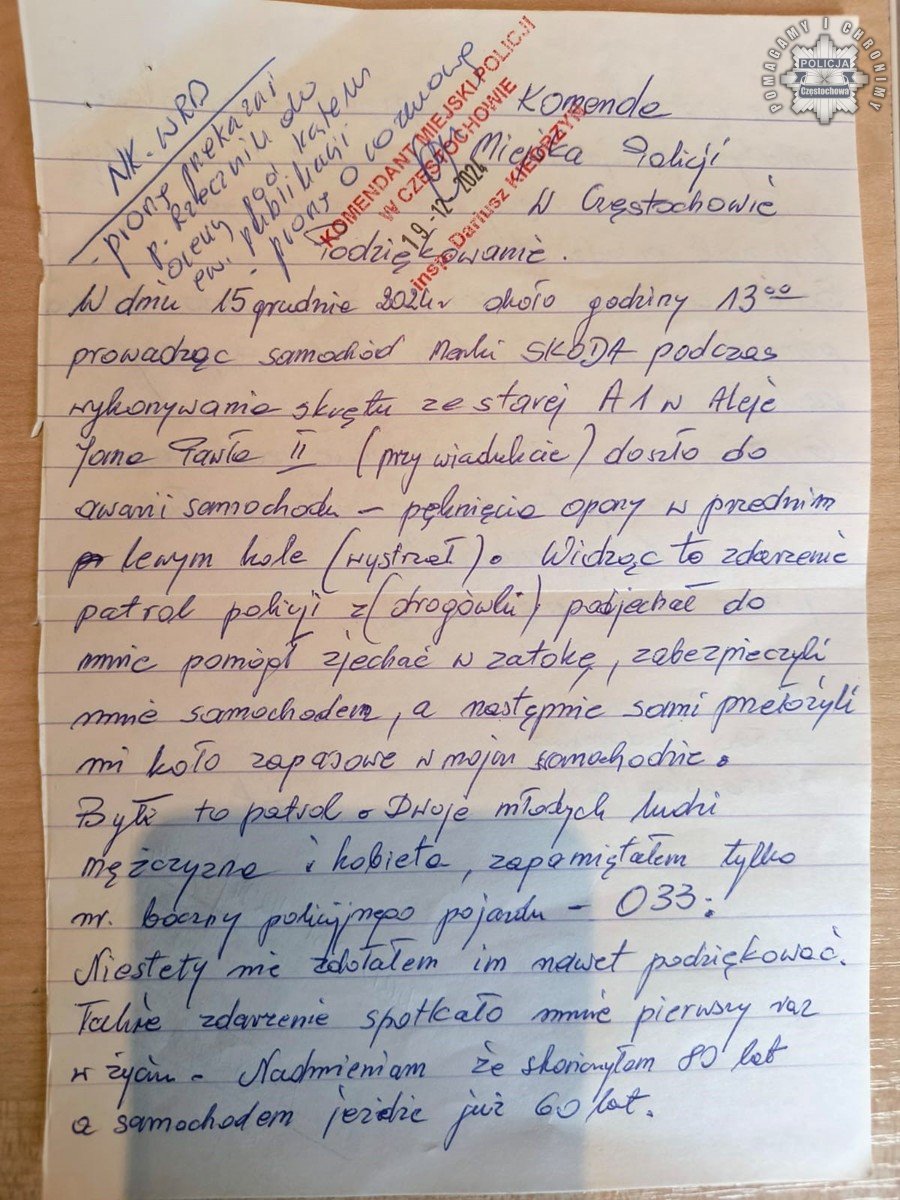 POMAGAMY I CHRONIMY
POLICJA
Częstochowa
NK. WRD
- proszę przekazać
p. Rzecznik do
oceny pod kątem
ew. publikacji
- proszę o rozmowę
KOMENDANT MIEJSKI POLICJI
W CZĘSTOCHOWIE
19-12-2024
insp. Dariusz KIEDRZYN
Komenda
Miejska Policji
W Częstochowie
Podziękowanie.
W dniu 15 grudnia 2024r około godziny 13⁰⁰
prowadząc samochód marki SKODA podczas
wykonywania skrętu ze starej A1 w Aleje
Jana Pawła II (przy wiadukcie) doszło do
awarii samochodu – pęknięcia opony w przednim
lewym kole (wystrzał). Widząc to zdarzenie
patrol policji z (drogówki) podjechał do
mnie pomógł zjechać w zatokę, zabezpieczyli
mnie samochodem, a następnie sami przełożyli
mi koło zapasowe w moim samochodzie.
Był to patrol. Dwoje młodych ludzi
mężczyzna i kobieta, zapamiętałem tylko
nr. boczny policyjnego pojazdu – 033.
Niestety nie zdołałem im nawet podziękować.
Takie zdarzenie spotkało mnie pierwszy raz
w życiu. Nadmieniam że skończyłem 80 lat
a samochodem jeżdże już 60 lat.